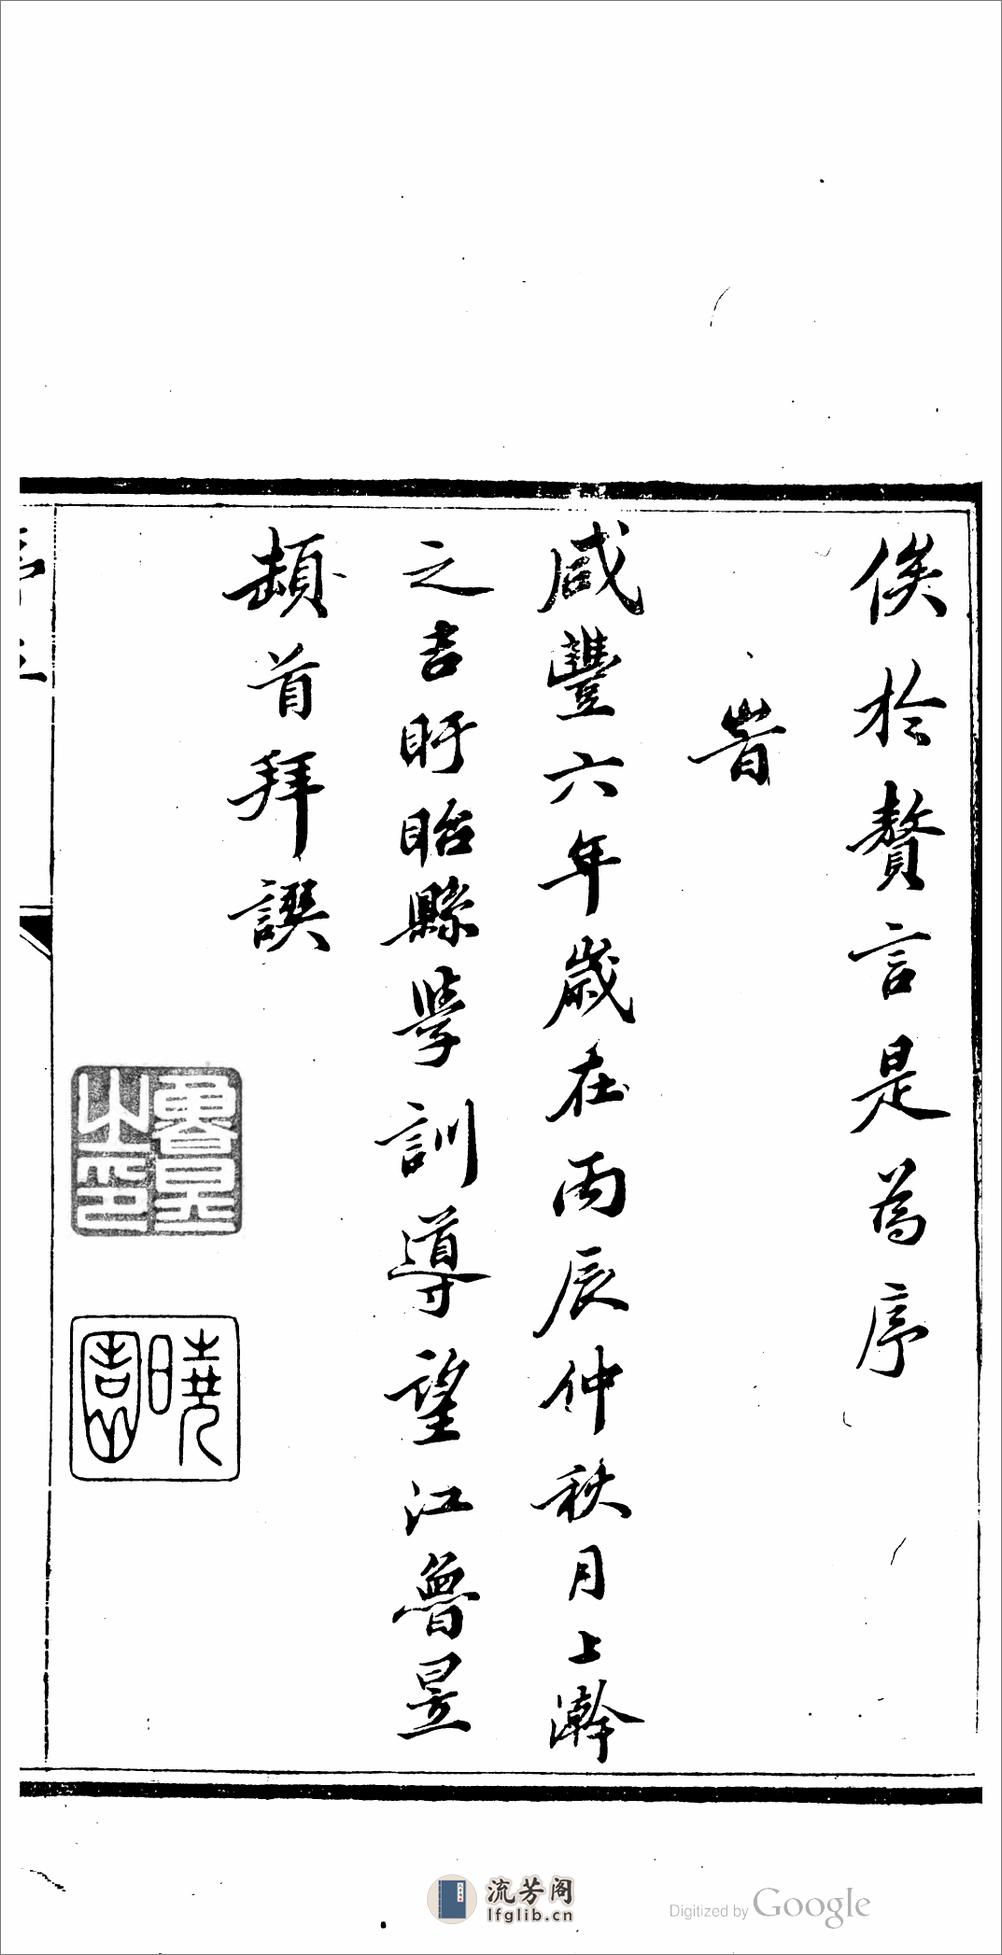 俟於贅言是為序
旹
咸豐六年歲在丙辰仲秋月上澣
之吉盱眙縣學訓導望江魯昱
頓首拜譔
魯昱之印
曉園
流芳阁
lfglib.cn
Digitized by Google